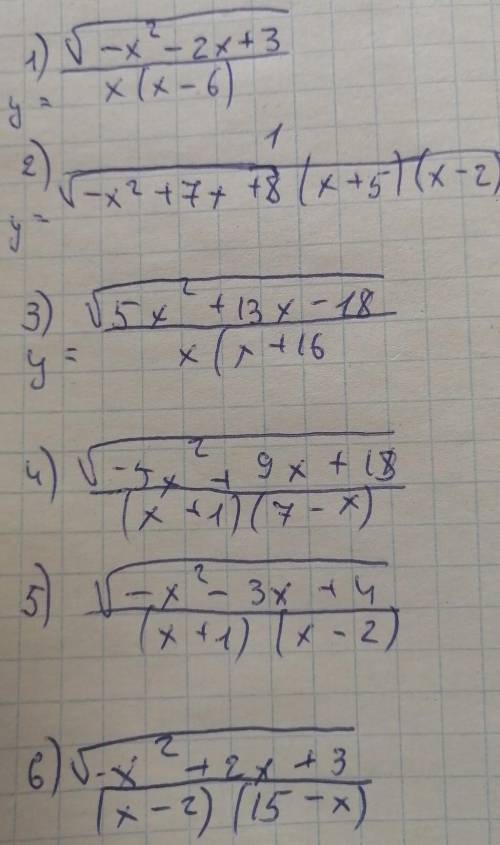 1) y = √(-x² - 2x + 3) / x(x - 6)
2) y = 1 / √(-x² + 7x + 8) (x + 5)(x - 2)
3) y = √(5x² + 13x - 18) / x(x + 16
4) √(-5x² + 9x + 18) / (x + 1)(7 - x)
5) √(-x² - 3x + 4) / (x + 1)(x - 2)
6) √(-x² + 2x + 3) / (x - 2)(15 - x)